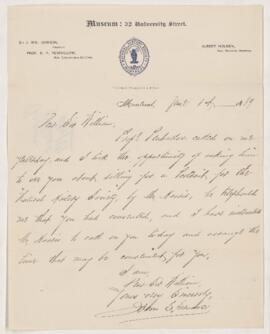 Museum: 32 University Street.
Sir J. Wm. Dawson,
Prof. D. P. Penhallow,
Albert Holden,
Montreal, 189
Dear Sir William,
Prof. Penhallow called on me
yesterday, and I took the opportunity of asking him
to see you about sitting for a portrait, for the
Natural History Society, by Mr. Harris, he telephoned
me that you had consented, and I have
Mr. Harris to call on you today and arrange the
time that may be convenient for you,
I am,
Dear Sir William
Yours very Sincerely,
John S.